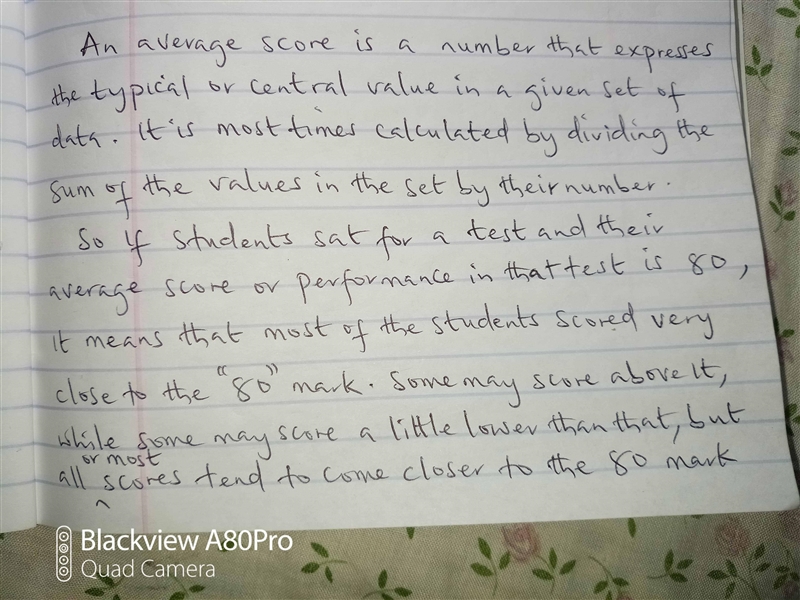 An average score is a number that expresses
the typical or central value in a given set of
data. It is most times calculated by dividing the
sum of the values in the set by their number.
So if students sat for a test and their
average score or performance in that test is 80,
it means that most of the students scored very
close to the "80" mark. Some may score above it,
while some may score a little lower than that, but
or most
all ^ scores tend to come closer to the 80 mark
Blackview A80Pro
Quad Camera